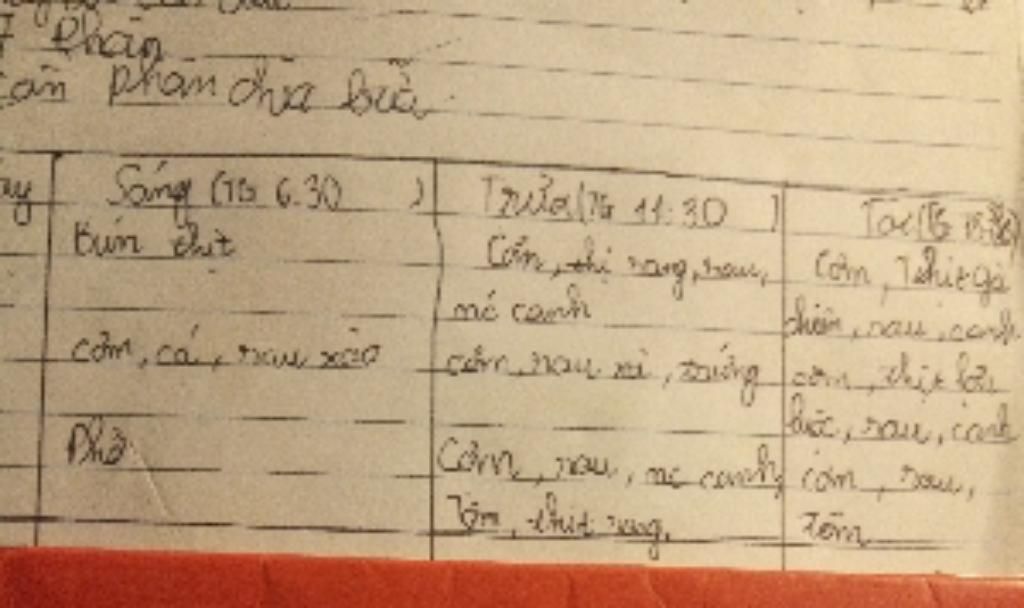 Phần
phần chia bữa
Sáng (TG 6.30 )
Trưa (TG 11:30 )
Tối (TG
Bún thịt
Cơm, thị rang, rau,
nc canh
Cơm, Thịt gà
chiên, rau, canh
cơm, cá, rau xào
cơm, rau xì, trứng
cơm, thịt lợn
luộc, rau, canh
Phở
Cơm, rau, nc canh,
Tôm, thịt rang.
cơm, rau,
tôm